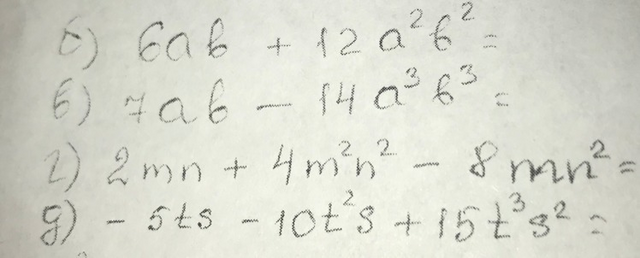 б) 6ab + 12a²b² =
в) 7ab - 14a³b³ =
г) 2mn + 4m²n² - 8mn² =
д) - 5ts - 10t²s + 15t³s² =